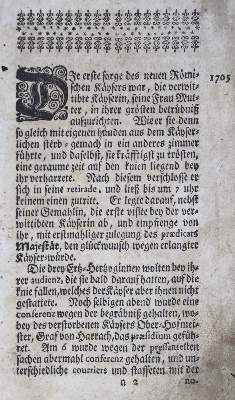 Die erste sorge des neuen Römi-
schen Käysers war, die verwit-
tibte Käyserin, seine Frau Mut-
ter, in ihrer grösten betrübniß
auffzurichten. Wie er sie denn
so gleich mit eigenen händen aus dem Käyser-
lichen sterb-gemach in ein anderes zimmer
führte, und daselbst, sie kräfftigst zu trösten,
eine geraume zeit auf den knien liegend bey
ihr verharrete. Nach diesem verschlosse er
sich in seine retirade, und ließ bis um 7 uhr
keinem einen zutritt. Er legte darauf, nebst
seiner Gemahlin, die erste visite bey der ver-
wittibten Käyserin ab, und empfienge von
ihr, mit erstmahliger zulegung des prædicats
Majestät, den glückwunsch wegen erlangter
Käyser-würde.
Die drey Ertz-Hertzoginnen wolten bey ih-
rer audienz, die sie bald darauf hatten, auf die
knie fallen, welches der Käyser aber ihnen nicht
gestattete. Noch selbigen abend wurde eine
conferenz wegen der begräbniß gehalten, wo-
bey des verstorbenen Käysers Ober-Hofmei-
ster, Graf von Harrach, das præsidium gefüh-
ret. Am 6 wurde wegen der pressantesten
sachen abermahl conferenz gehalten, und un-
terschiedliche couriers und staffeten mit der
a 2 no-
1705